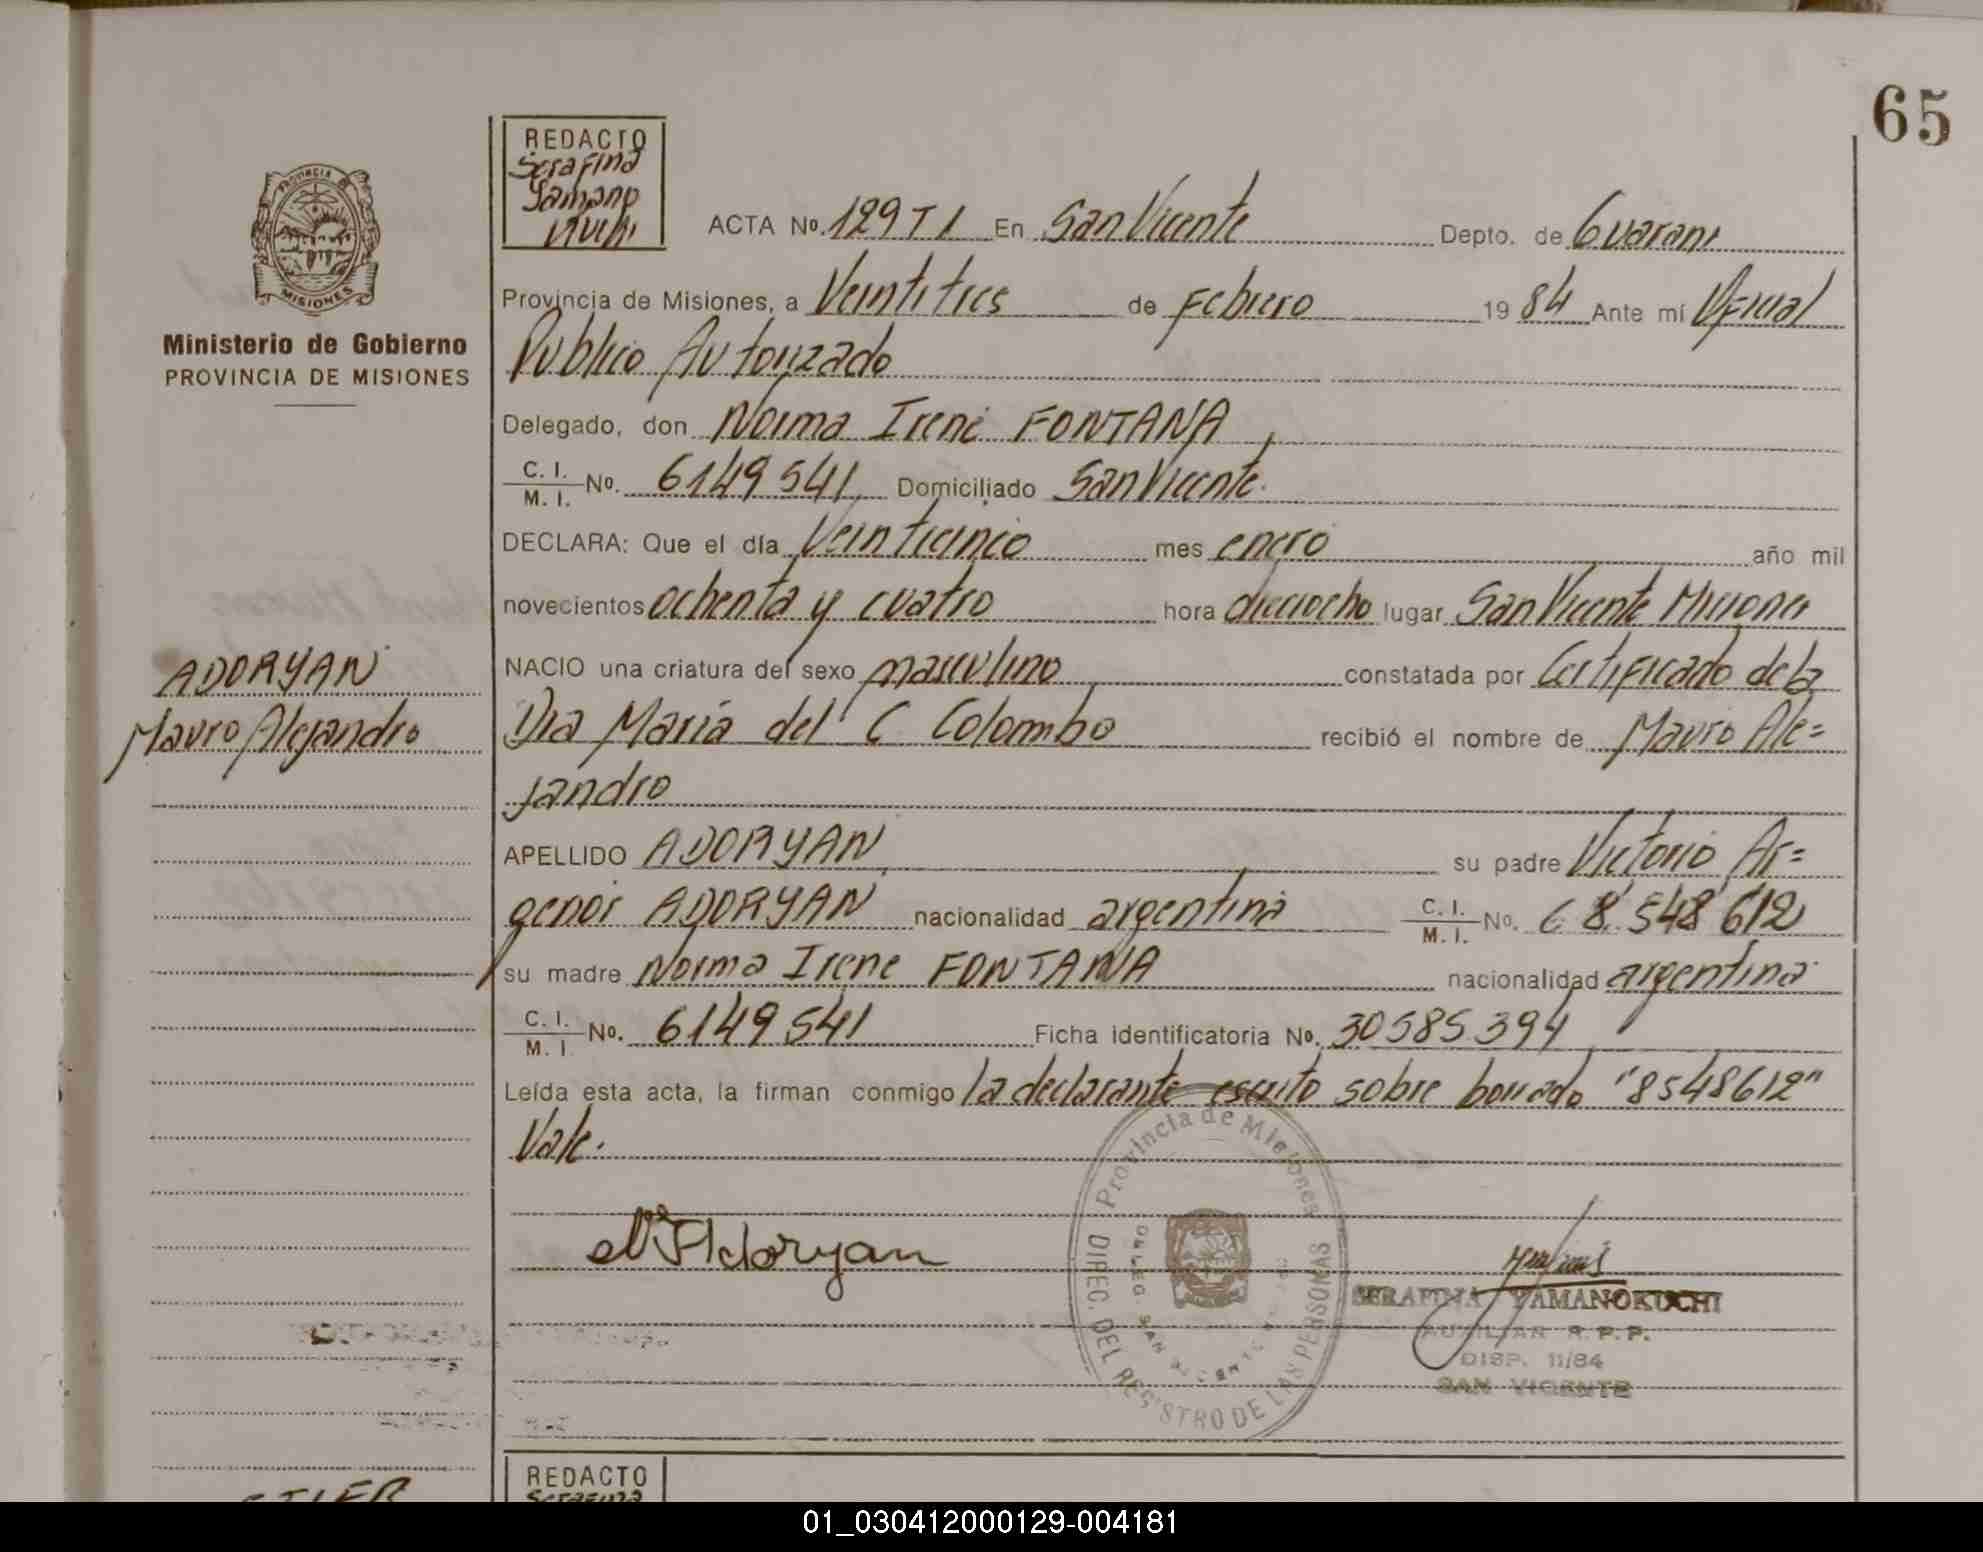 65
REDACTO
Serafina
Yamano
Kuchi
PROVINCIA D
MISIONES
Ministerio de Gobierno
PROVINCIA DE MISIONES
ACTA Nº. 129 T I En San Vicente Depto. de Guarani
Provincia de Misiones, a Veintitres de Febrero 19 84 Ante mí Oficial
Publico Autorizado
Delegado, don Norma Irene FONTANA,
C. I.
M. I. Nº. 6149541 Domiciliado San Vicente.
DECLARA: Que el día Veinticinco mes enero año mil
novecientos ochenta y cuatro hora dieciocho lugar San Vicente Misiones
NACIO una criatura del sexo masculino constatada por Certificado de la
Dra Maria del C. Colombo recibió el nombre de Mauro Ale=
jandro
ADORYAN
Mauro Alejandro
APELLIDO ADORYAN su padre Victorio Ar=
genor ADORYAN nacionalidad argentina C. I.
M. I. Nº. 8.548 612
su madre Norma Irene FONTANA nacionalidad argentina
C. I.
M. I. Nº. 6149541 Ficha identificatoria Nº. 30585394
Leída esta acta, la firman conmigo la declarante escrito sobre borrado "8548612"
Vale.
Provincia de Misiones
DIREC. DEL REGISTRO DE LAS PERSONAS
DELEG. SAN VICENTE
N F Adoryan
SERAFINA YAMANOKUCHI
AUXILIAR R.P.P.
DISP. 11/84
SAN VICENTE
REDACTO
Serafina
01_030412000129-004181